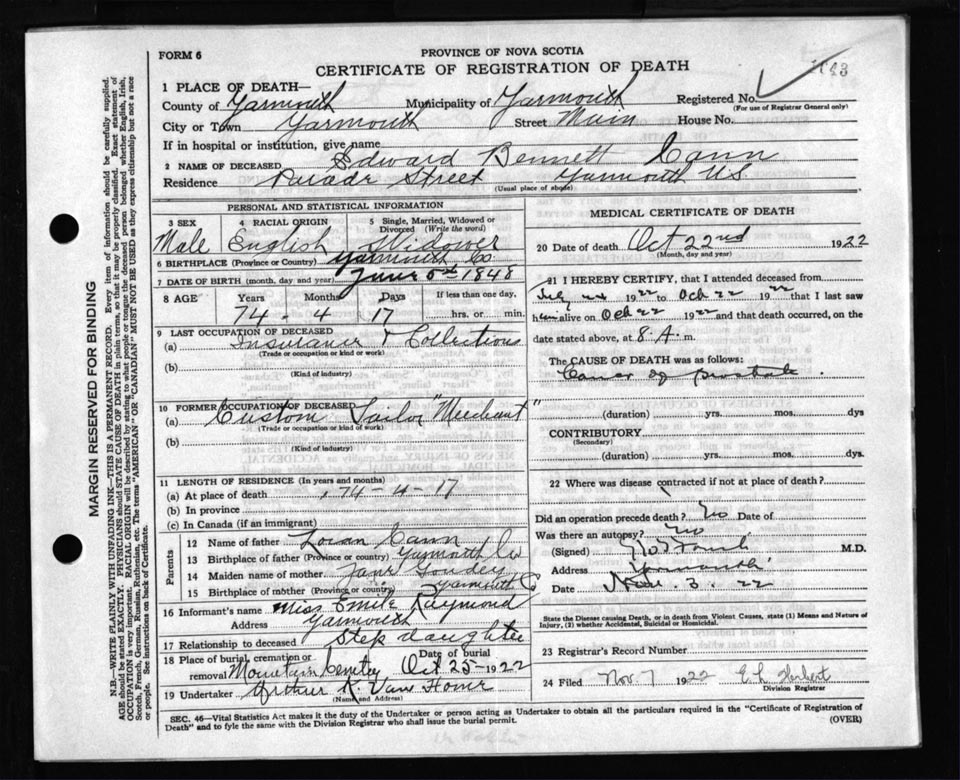 FORM 6
PROVINCE OF NOVA SCOTIA
CERTIFICATE OF REGISTRATION OF DEATH
1143
1 PLACE OF DEATH—
County of Yarmouth Municipality of Yarmouth Registered No.
(For use of Registrar General only)
City or Town Yarmouth Street Main House No.
If in hospital or institution, give name
2 NAME OF DECEASED Edward Bennett Cann
Residence Parade Street Yarmouth N.S.
(Usual place of abode)
PERSONAL AND STATISTICAL INFORMATION
3 SEX 4 RACIAL ORIGIN 5 Single, Married, Widowed or Divorced (Write the word)
Male English Widower
6 BIRTHPLACE (Province or Country) Yarmouth Co
7 DATE OF BIRTH (month, day and year) June 5th 1848
8 AGE Years Months Days If less than one day,
74 - 4 17 hrs. or min.
9 LAST OCCUPATION OF DECEASED
(a) Insurance & Collections
(Trade or occupation or kind of work)
(b)
(Kind of industry)
10 FORMER OCCUPATION OF DECEASED
(a) Custom Tailor "Merchant"
(Trade or occupation or kind of work)
(b)
(Kind of industry)
11 LENGTH OF RESIDENCE (In years and months)
(a) At place of death 74-4-17
(b) In province
(c) In Canada (if an immigrant)
Parents
12 Name of father Cann
13 Birthplace of father (Province or country) Yarmouth Co
14 Maiden name of mother Jane
15 Birthplace of mother (Province or country) Yarmouth Co
16 Informant's name Miss Raymond
Address Yarmouth
17 Relationship to deceased Step daughter
18 Place of burial, cremation or removal Mountain Cemetry Date of burial Oct 25- 1922
19 Undertaker Arthur K. Van Horne
(Name and Address)
MEDICAL CERTIFICATE OF DEATH
20 Date of death Oct 22nd 1922
(Month, day and year)
21 I HEREBY CERTIFY, that I attended deceased from
July 1922 to Oct 22 1922 that I last saw
him alive on Oct 22 1922 and that death occurred, on the
date stated above, at 8.A. m.
The CAUSE OF DEATH was as follows:
Cancer of prostate.
(duration) yrs. mos. dys
CONTRIBUTORY
(Secondary)
(duration) yrs. mos. dys
22 Where was disease contracted if not at place of death?
Did an operation precede death? No Date of
Was there an autopsy? No
(Signed) M.D.
Address Yarmouth
Date Nov. 3. 22
State the Disease causing Death, or in death from Violent Causes, state (1) Means and Nature of Injury, (2) whether Accidental, Suicidal or Homicidal.
23 Registrar's Record Number
24 Filed Nov. 7 1922 E L Herbert
Division Registrar
SEC. 46—Vital Statistics Act makes it the duty of the Undertaker or person acting as Undertaker to obtain all the particulars required in the "Certificate of Registration of
Death" and to fyle the same with the Division Registrar who shall issue the burial permit.
(OVER)
MARGIN RESERVED FOR BINDING
N.B.—WRITE PLAINLY WITH UNFADING INK—THIS IS A PERMANENT RECORD. Every item of information should be carefully supplied.
AGE should be stated EXACTLY. PHYSICIANS should STATE CAUSE OF DEATH in plain terms, so that it may be properly classified. Exact statement of
OCCUPATION is very important. RACIAL ORIGIN will be described by stating to what people or tongue the deceased person belonged whether English, Irish,
Scotch, French, German, Russian, Ruthenian, etc. The terms "AMERICAN" OR "CANADIAN" MUST NOT BE USED as they express citizenship but not a race
or people. See instructions on back of Certificate.